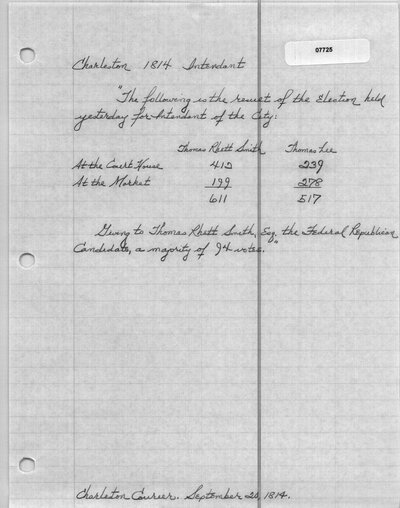 07725
Charleston 1814 Intendant
"The following is the result of the Election held
yesterday for Intendant of the City:
Thomas Rhett Smith Thomas Lee
At the Court House 412 239
At the Market 199 278
611 517
Giving to Thomas Rhett Smith, Esq. the Federal Republican
Candidate, a majority of 94 votes."
Charleston Courier. September 20, 1814.